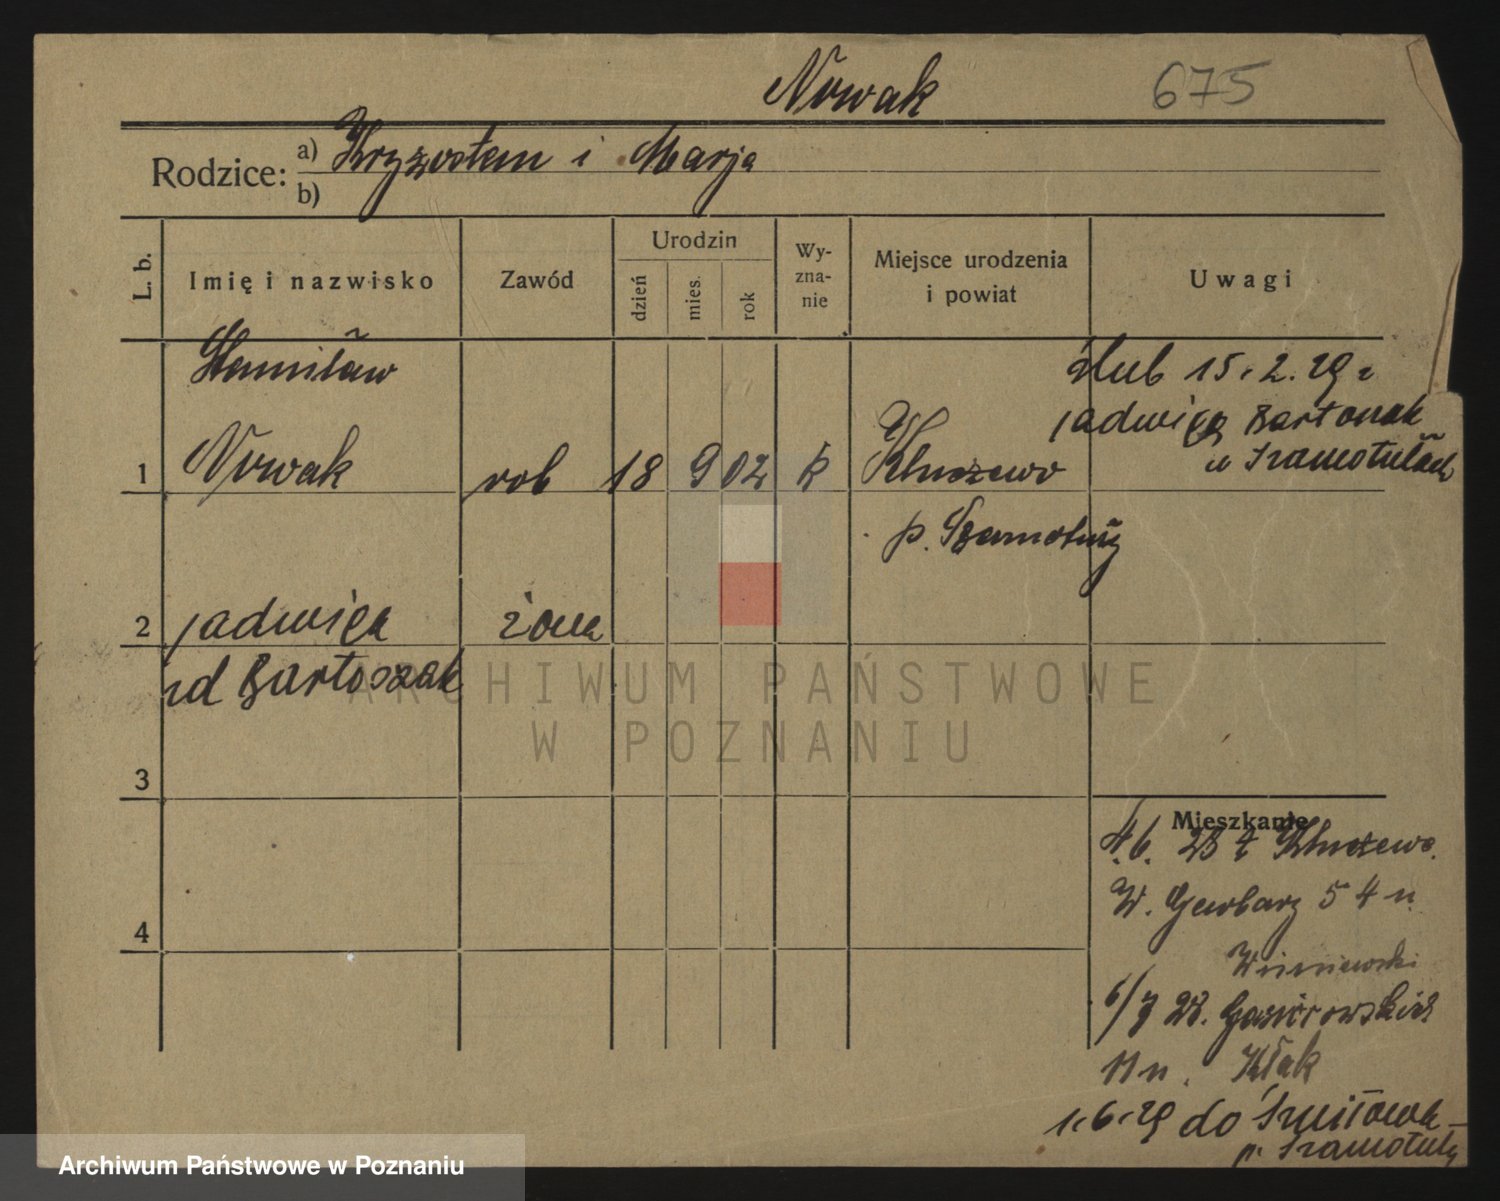 Nowak 675
Rodzice: a) Krzysostem i Marja
b)
L. b. Imię i nazwisko Zawód Urodzin dzień mies. rok Wyznanie Miejsce urodzenia i powiat Uwagi
Stanisław
ślub 15.2.29 r
Jadwigą Bartoszak
w Szamotułach
1 Nowak rob 18 9 02 k Kluczewo
p. Szamotuły
2 Jadwiga żona
zd Bartoszak
3
4
Mieszkanie
4.6. 28 z Kluczewo.
W. Garbary 54 n.
Wiśniewski
6/7 28. Gąsiorowskich
11 n. Kłak
1.6.29 do Śmiłowa
p. Szamotuły
ARCHIWUM PAŃSTWOWE
W POZNANIU
Archiwum Państwowe w Poznaniu